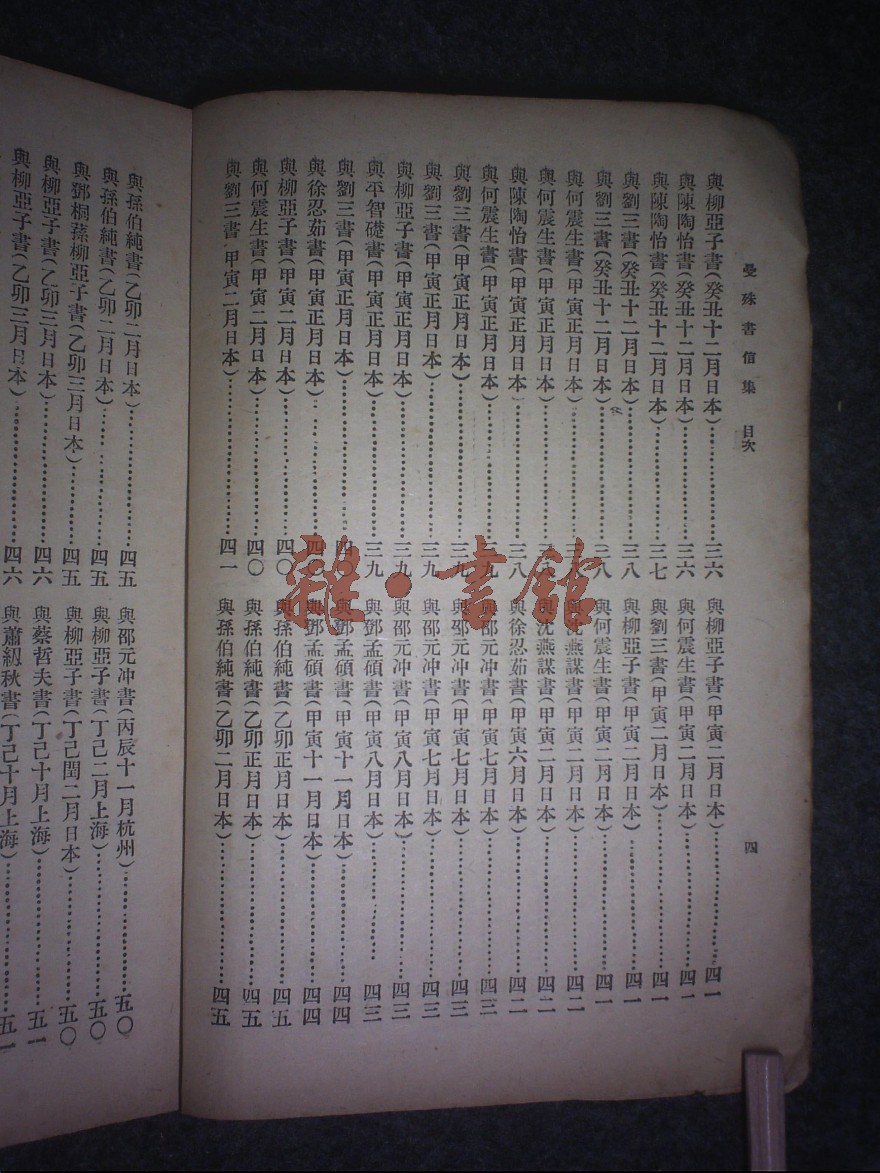 曼殊書信集 目次
四
與柳亞子書(癸丑十二月日本)……三六
與陳陶怡書(癸丑十二月日本)……三六
與陳陶怡書(癸丑十二月日本)……三七
與劉三書(癸丑十二月日本)……三八
與劉三書(癸丑十二月日本)……三八
與何震生書(甲寅正月日本)……
與何震生書(甲寅正月日本)……
與陳陶怡書(甲寅正月日本)……三八
與何震生書(甲寅正月日本)……三九
與劉三書(甲寅正月日本)……三九
與劉三書(甲寅正月日本)……三九
與柳亞子書(甲寅正月日本)……三九
與平智礎書(甲寅正月日本)……三九
與劉三書(甲寅正月日本)……四〇
與徐忍茹書(甲寅二月日本)……四〇
與柳亞子書(甲寅二月日本)……四〇
與何震生書(甲寅二月日本)……四〇
與劉三書(甲寅二月日本)……四一
與柳亞子書(甲寅二月日本)……四一
與何震生書(甲寅二月日本)……四一
與劉三書(甲寅二月日本)……四一
與柳亞子書(甲寅二月日本)……四一
與何震生書(甲寅二月日本)……四一
與沈燕謀書(甲寅二月日本)……四二
與沈燕謀書(甲寅二月日本)……四二
與徐忍茹書(甲寅六月日本)……四二
與邵元冲書(甲寅七月日本)……四三
與邵元冲書(甲寅七月日本)……四三
與邵元冲書(甲寅七月日本)……四三
與邵元冲書(甲寅八月日本)……四三
與鄧孟碩書(甲寅八月日本)……四三
與鄧孟碩書(甲寅十一月日本)……四四
與鄧孟碩書(甲寅十一月日本)……四四
與孫伯純書(乙卯正月日本)……四五
與孫伯純書(乙卯正月日本)……四五
與孫伯純書(乙卯二月日本)……四五
與孫伯純書(乙卯二月日本)……四五
與孫伯純書(乙卯二月日本)……四五
與鄧桐蓀柳亞子書(乙卯三月日本)……四五
與柳亞子書(乙卯三月日本)……四六
與柳亞子書(乙卯三月日本)……四六
與邵元冲書(丙辰十一月杭州)……五〇
與柳亞子書(丁己二月上海)……五〇
與柳亞子書(丁己閏二月日本)……五〇
與蔡哲夫書(丁己十月上海)……五一
與蕭紉秋書(丁己十月上海)……五一
雜·書館